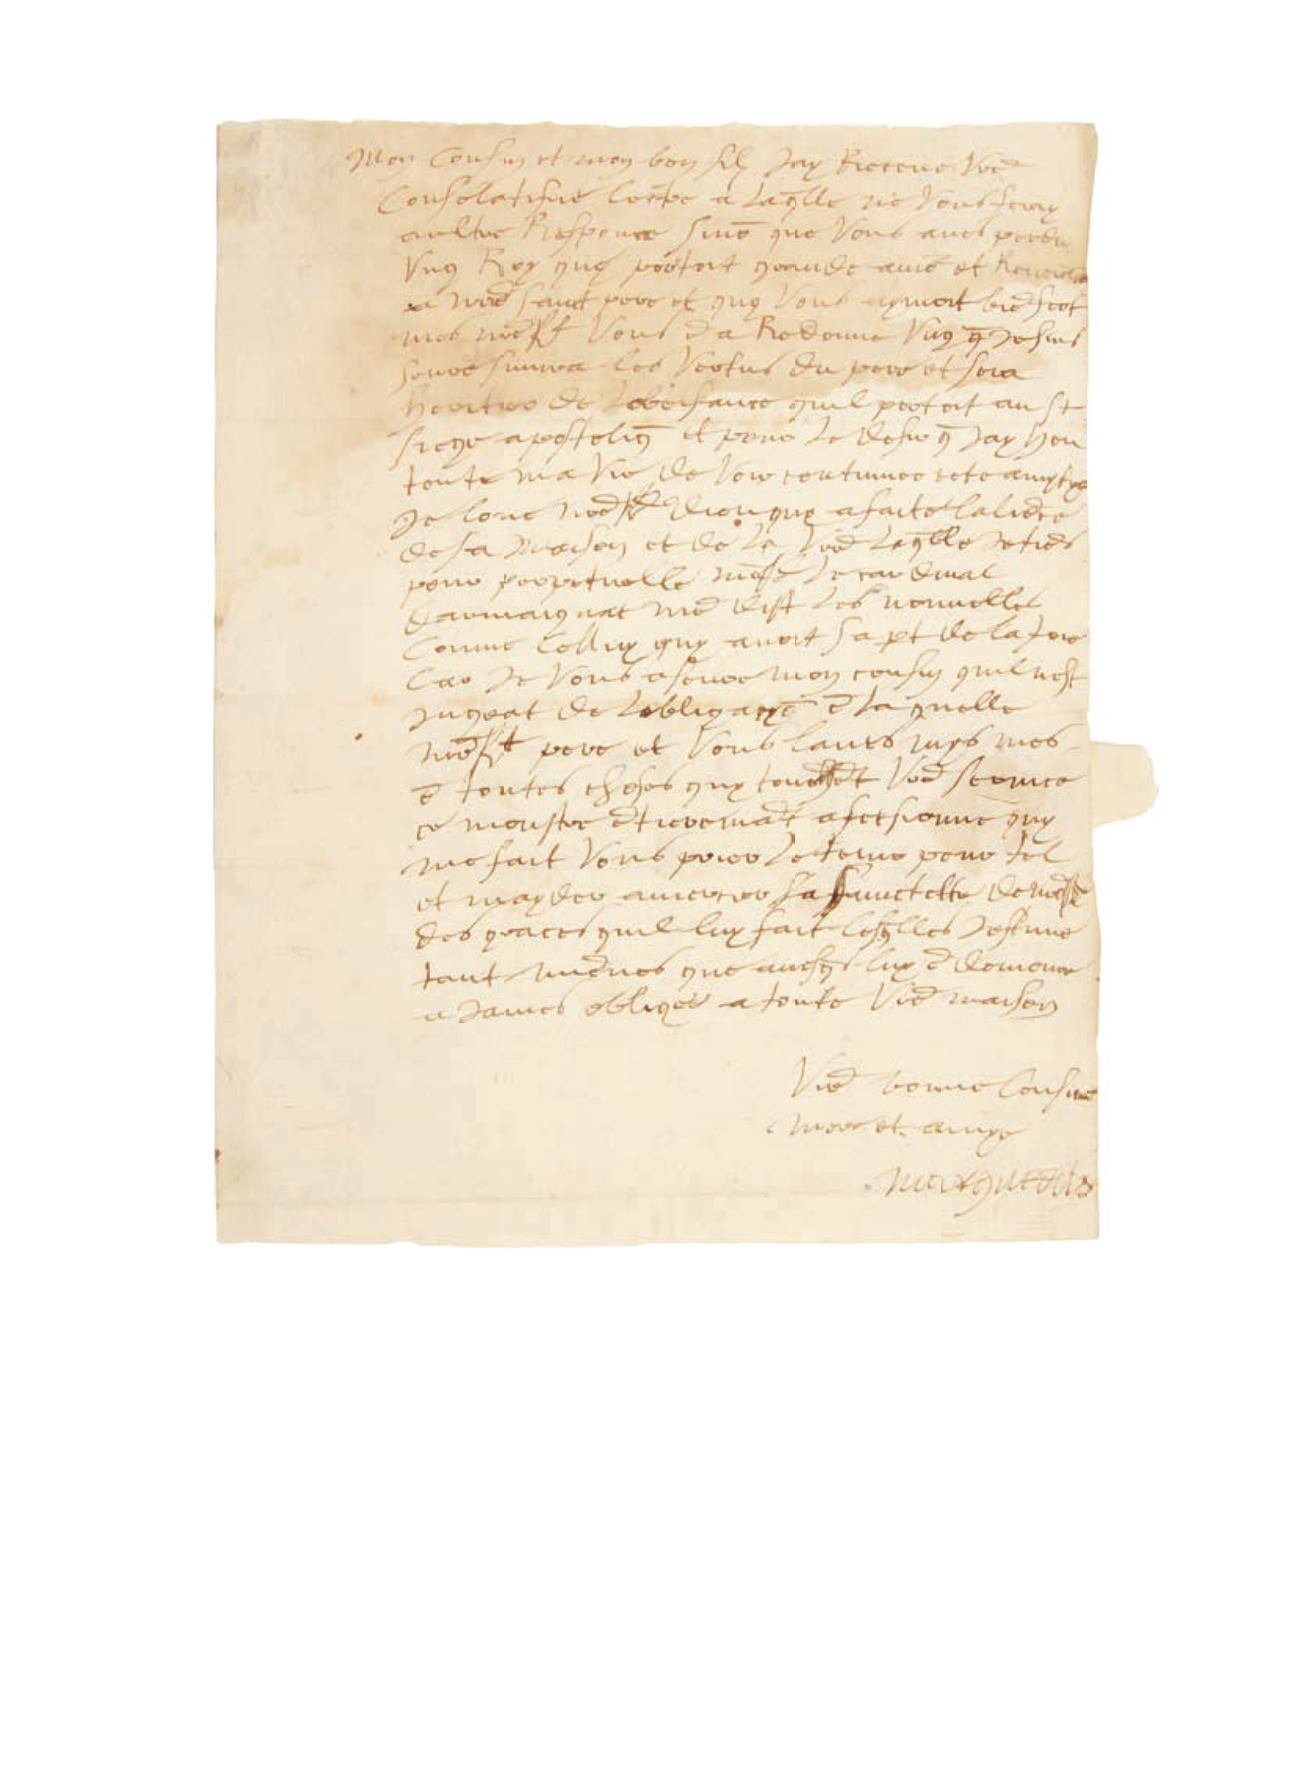 Mon Cousin et mon bon filz Jay Receue Vre
Consolatifve lectre a laqlle ne Vous feray
aultre Response sinō que Vous aues perdu
Vng Roy quy portoit grande amō et Reverance
a nre saint pere et quy Vous aymoit bien fort
mes nre sr Vous ē a Redonne Vng q̄ Je suis
seure suivra les Vertus du pere et sera
heritier de lobeisance quil portoit au st
siege apostoliq̄ et pour le desir q̄ Jay heu
toute ma Vie de Voir continuer cete amytye
Je loue nre sr Dieu quy a faict laliāce
de sa maison et de la Vre laqlle Je tiēs
pour perpetuelle mōsr le cardinal
darmaignac me dist les nouvelles
Comme Celluy quy avoit sa pt de la Joie
Car Je Vous aseure mon cousin quil nest
Ingrat de lobligacyō ē la quelle
nre st pere et Vous laves mys mes
ē toutes choses quy touchēt Vre service
ce monstre ētieremāt afectionne quy
me fait Vous prier le tenir pour tel
et mayder a mercier sa sainctette de mōsr
des graces quil luy fait lesqlles Jestime
tant miēnes que auesq̄s luy ē demoure
a James obligee a toute Vre maison
Vre bonne Cousine
mere et amye
Marguerite